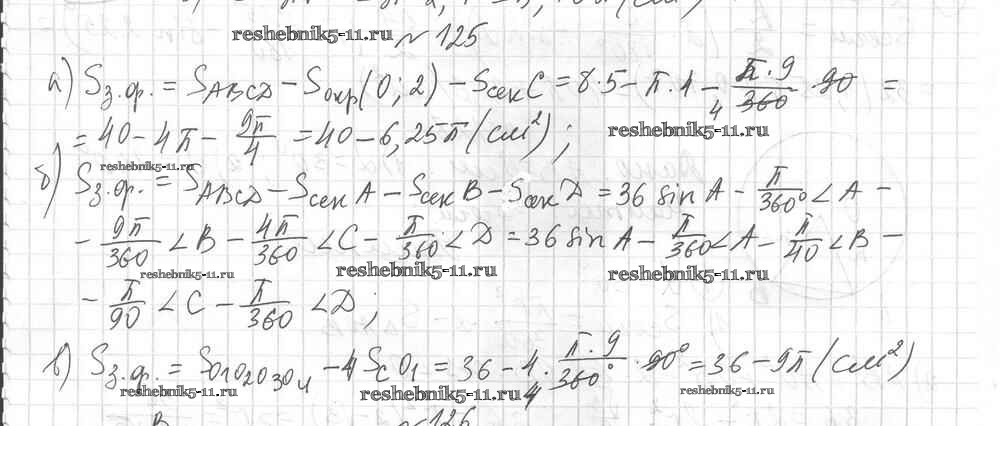 reshebnik5-11.ru
№ 125
а) Sз.ф. = SABCD – Sокр(0; 2) – Sсек C = 8·5 – π·4 – π·9/360 · 90 =
= 40 – 4π – 9π/4 = 40 – 6,25π (см²);
reshebnik5-11.ru
reshebnik5-11.ru
б) Sз.ф. = SABCD – Sсек A – Sсек B – Sсек D = 36 sin A – π/360° ∠A –
– 9π/360 ∠B – 4π/360 ∠C – π/360 ∠D = 36 sin A – π/360 ∠A – π/40 ∠B –
reshebnik5-11.ru
reshebnik5-11.ru
reshebnik5-11.ru
– π/90 ∠C – π/360 ∠D;
в) Sз.ф. = SO1O2O3O4 – 4 ScO1 = 36 – 4 · π·9/360° · 90° = 36 – 9π (см²)
reshebnik5-11.ru
reshebnik5-11.ru
reshebnik5-11.ru